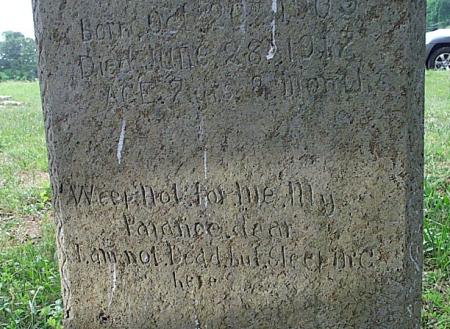 Born Oct 20th 1909
Died June 28, 1912
AGE. 2 yrs. 8 Months
Weep. Not for Me. My
Parance. dear
I. am. not. Dead. but. Sleeping
here